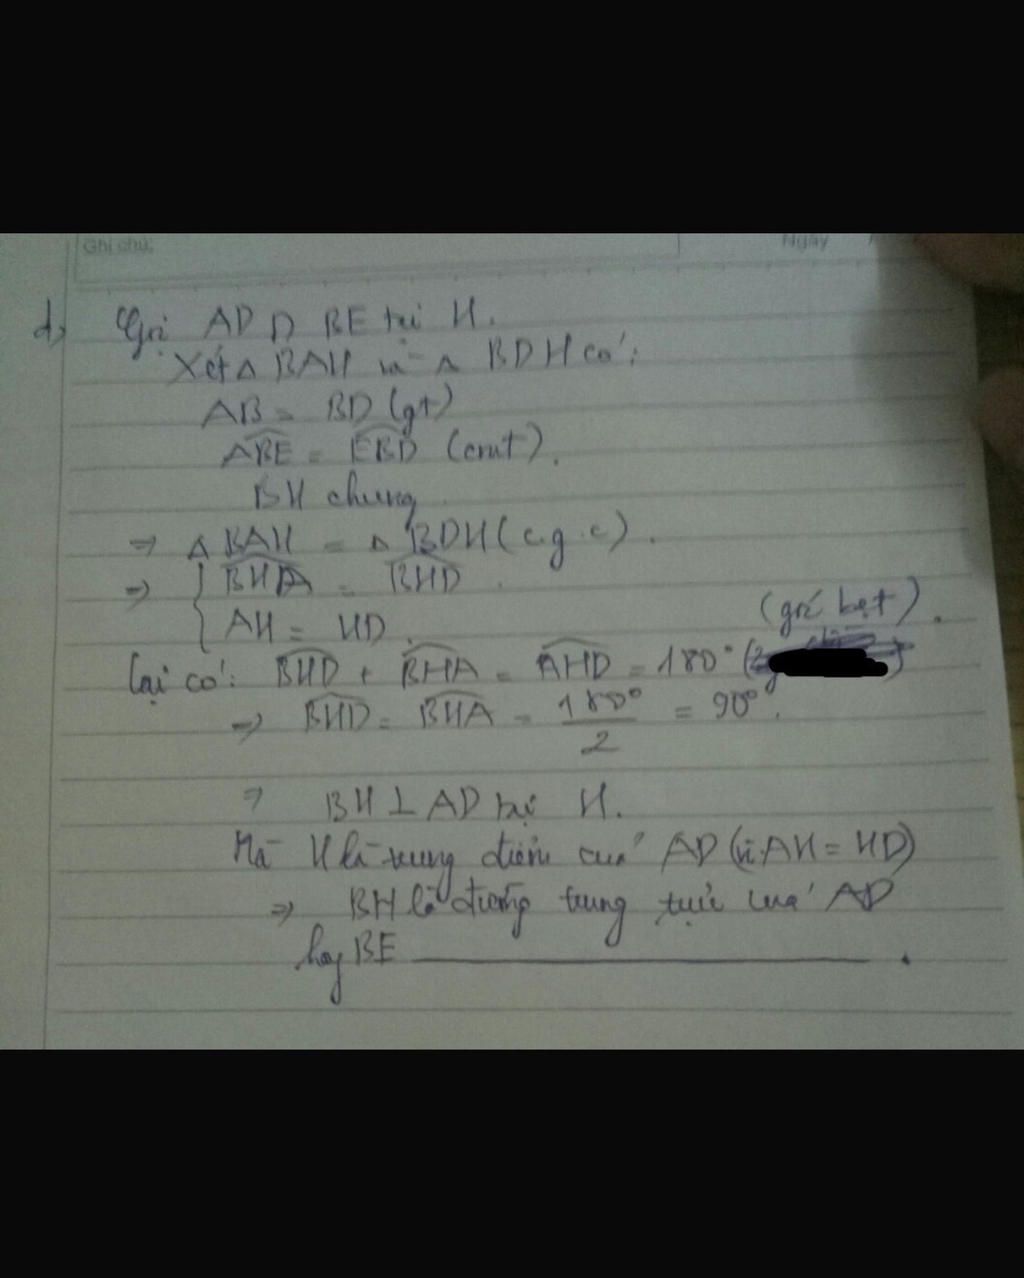 Ghi chú: Ngày
d, Gọi AD ∩ BE tại H.
Xét Δ BAH và Δ BDH có:
AB = BD (gt)
ABE = EBD (cmt).
BH chung
⇒ Δ BAH = Δ BDH (c.g.c).
⇒ { BHA = BHD.
AH = HD.
(góc bẹt).
Lại có: BHD + BHA = AHD = 180°
⇒ BHD = BHA = 180°/2 = 90°.
⇒ BH ⊥ AD tại H.
Mà H là trung điểm của AD (vì AH = HD)
⇒ BH là đường trung trực của AD
hay BE